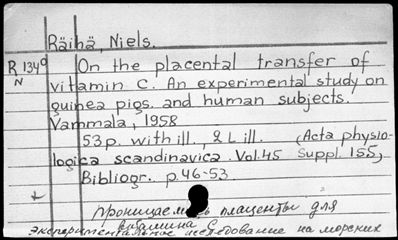 Räihä, Niels.
R 134⁰ On the placental transfer of
N vitamin C. An experimental study on
guinea pigs and human subjects.
Vammala, 1958
53 p. with ill., 2 L ill. (Acta physio-
logica scandinavica. Vol. 45 Suppl. 155)
Bibliogr. p. 46-53
Проницаемость плаценты для
витамина C
Экспериментальное исследование на морских